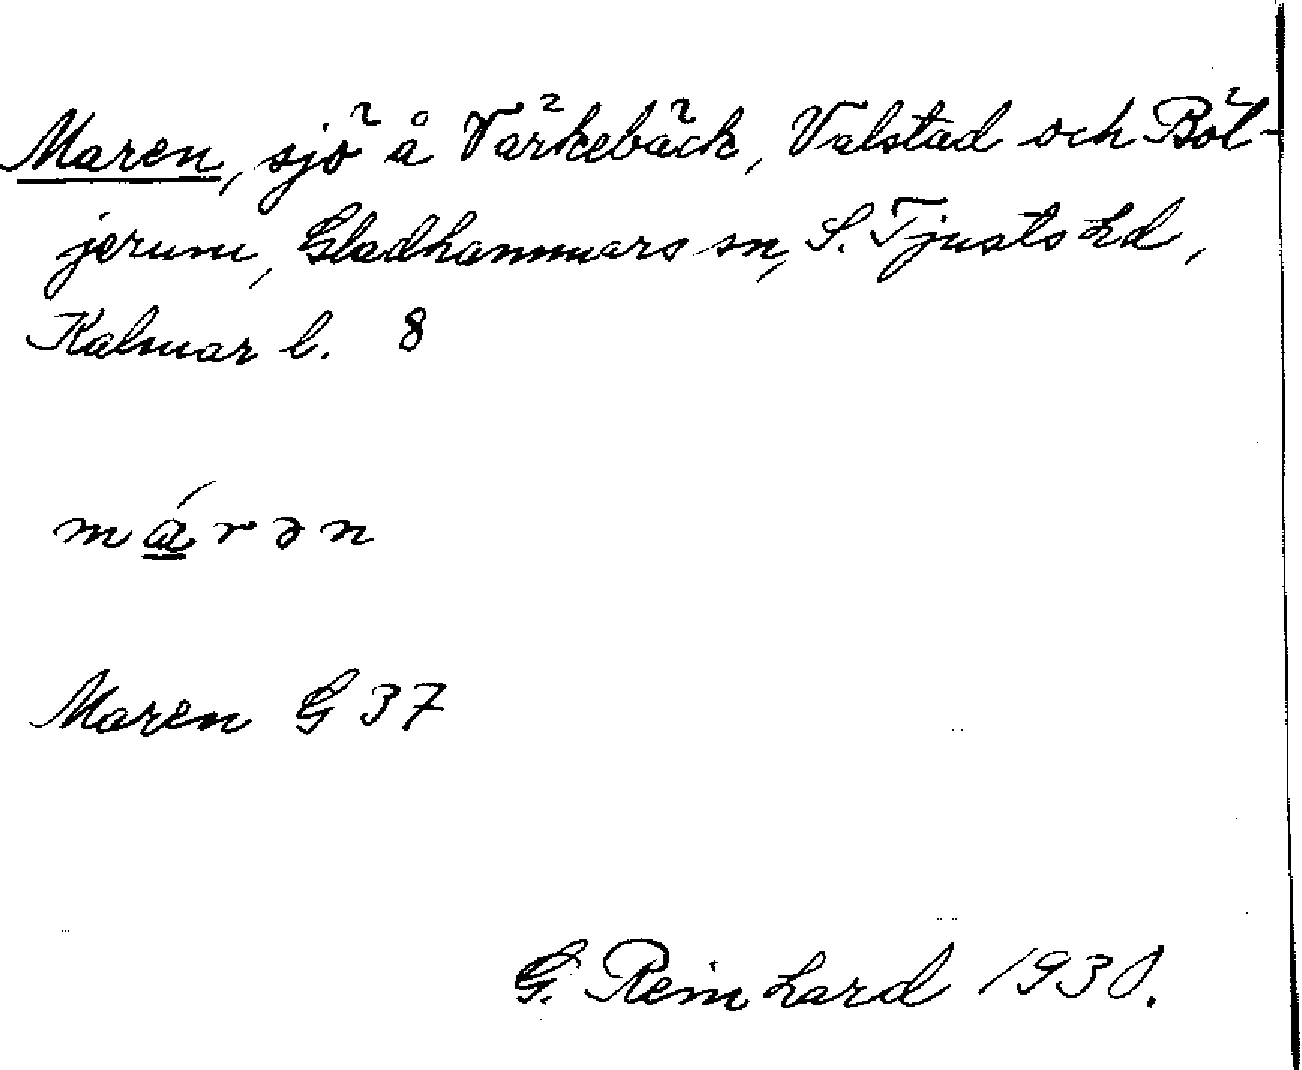 Maren, sjö å Värkebäck, Valstad och Böl-
jerum, Gladhammars sn, S. Tjusts hd,
Kalmar l. 8
má̳rən
Maren G 37
G. Reinhard 1930.